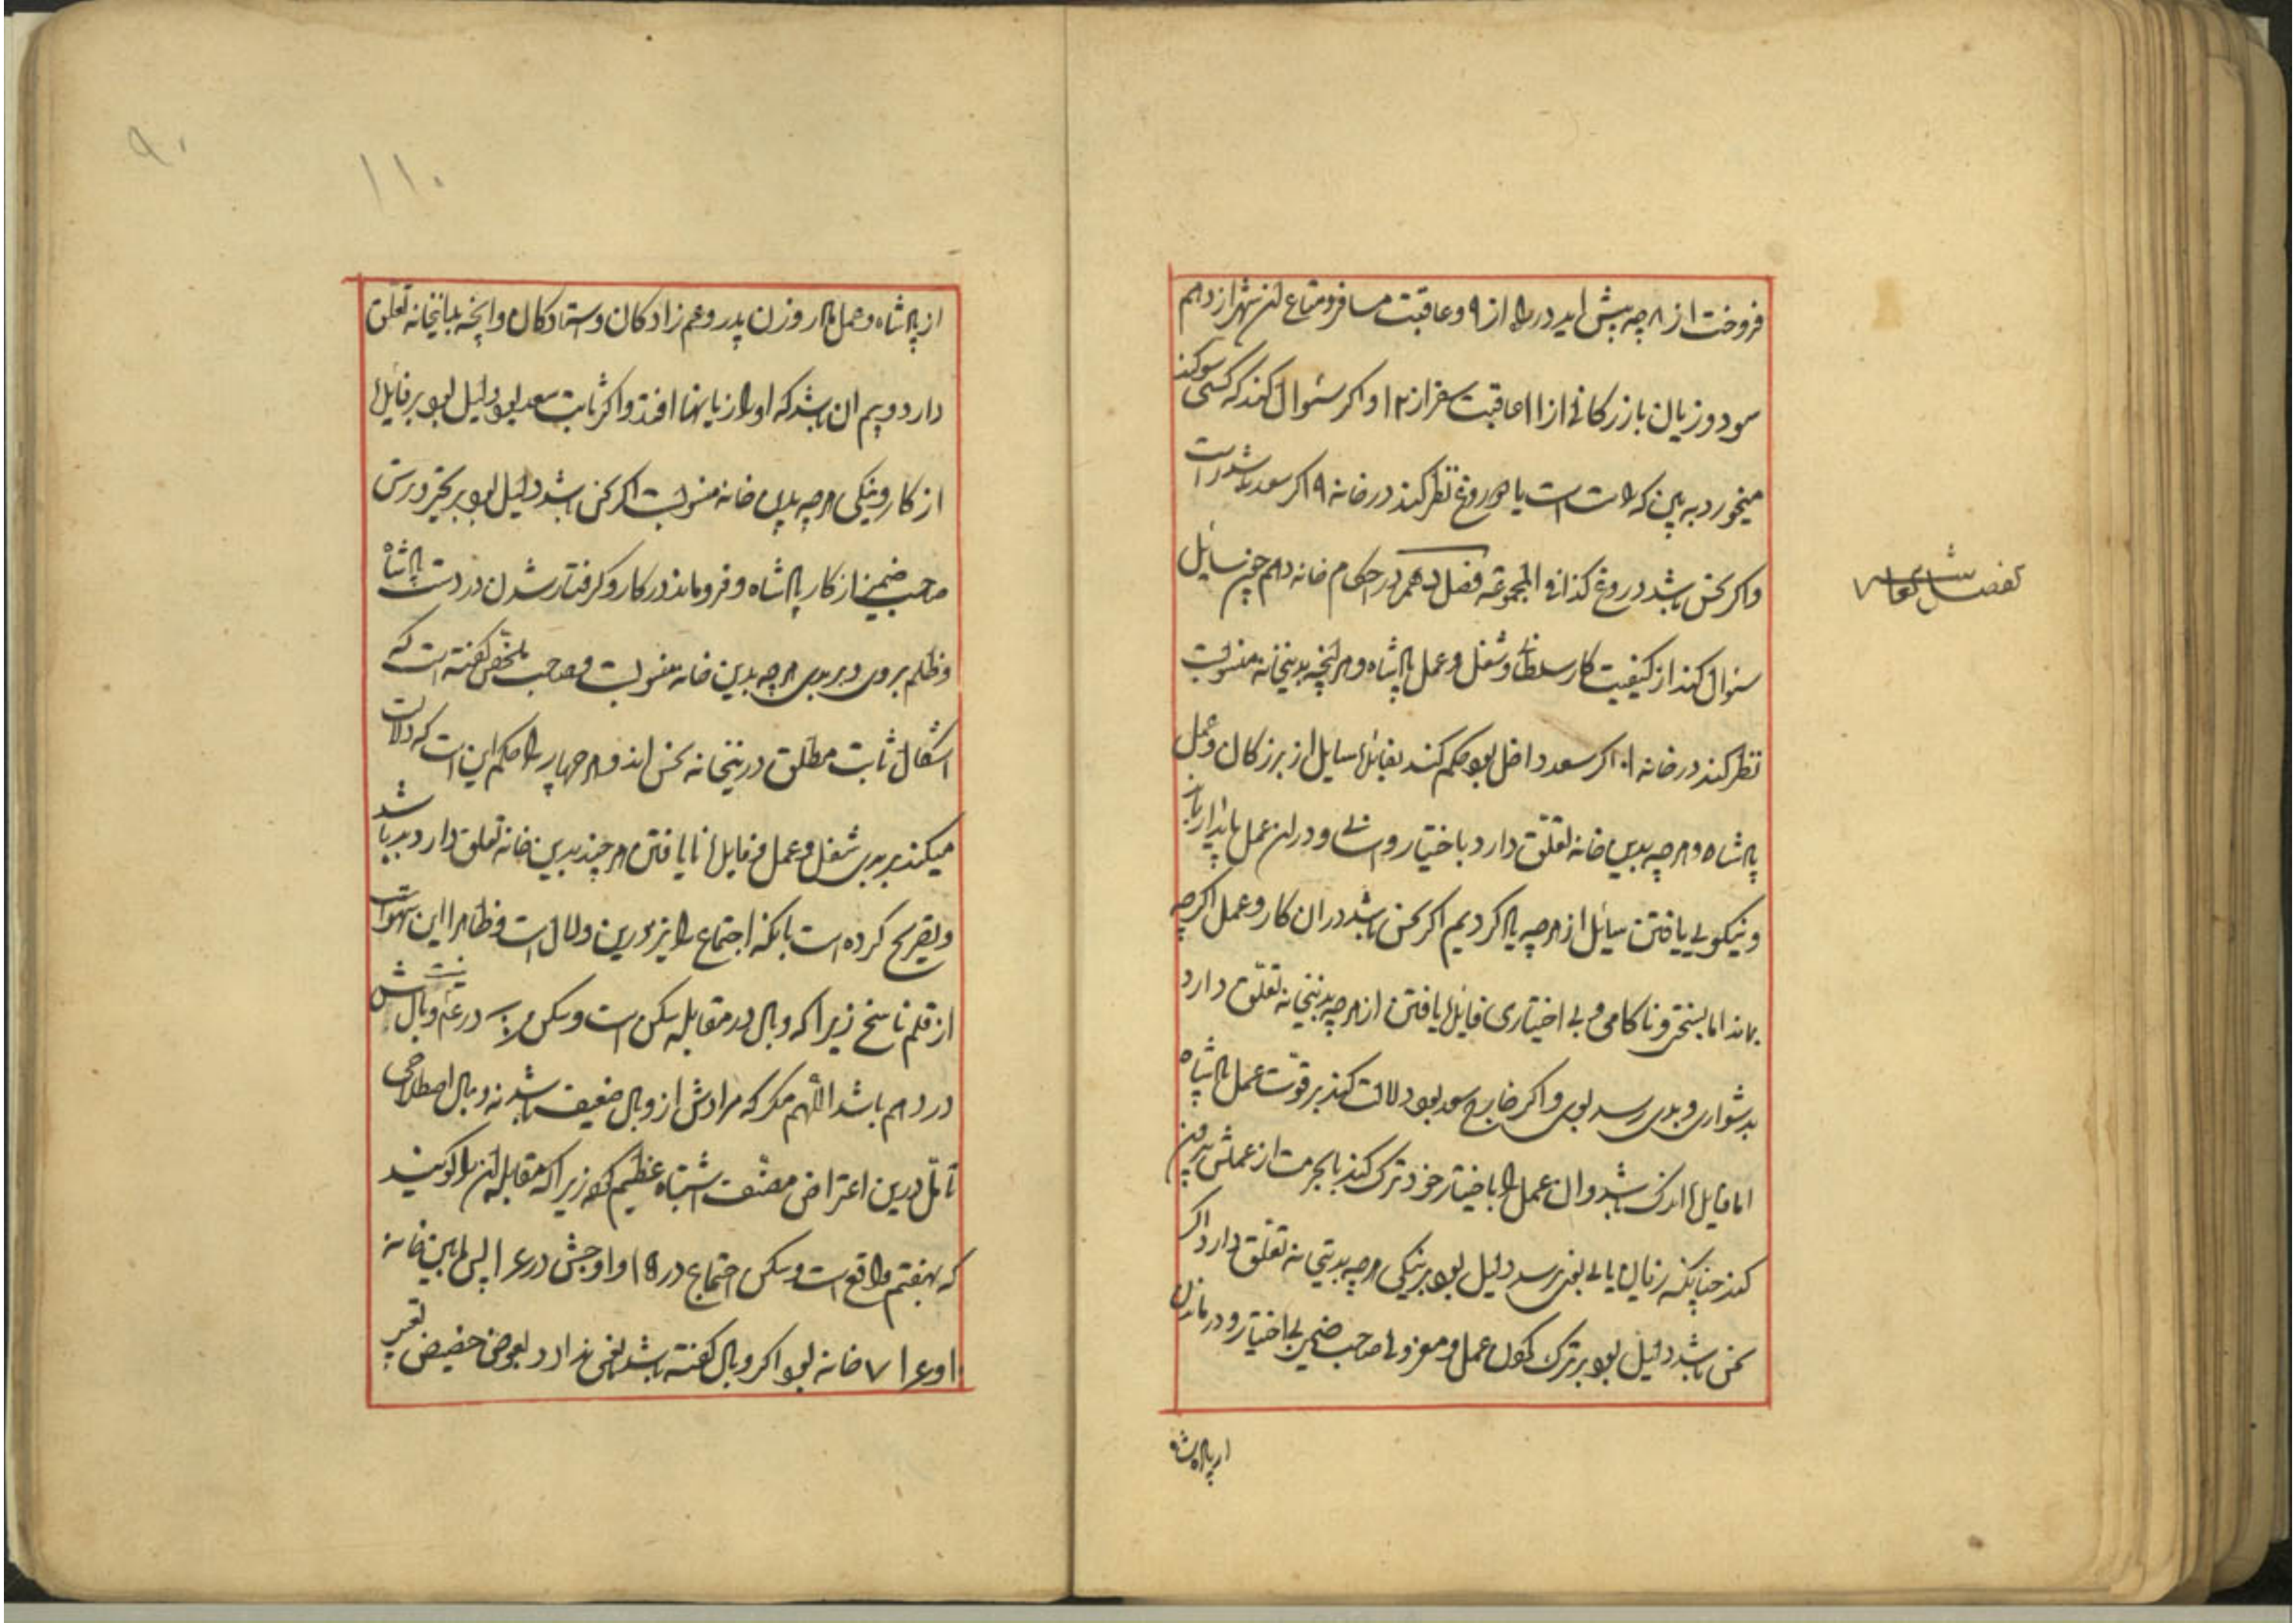 فروخت از ۸ چه پیش اید در راه از ۹ و عاقبت مسافر و متاع ان شهر از دهم
سود و زیان بازرکانی از ۱۱ عاقبت سفر از ۱۲ و اکر سئوال کند که کسی سوکند
میخورد به بین که راست است یا دروغ نظر کند در خانه ۹ اکر سعد باشد راست
واکر نحس باشد دروغ کذا فی المجموعه فصل دهم در احکام خانه دهم چون سایل
سئوال کند از کیفیت کار سلطانی و شغل و عمل پادشاه و هر انچه بدینخانه منسوبست
نظر کند در خانه ۱۰ اکر سعد داخل بود حکم کند بفایدها سایل از بزرکان و عمل
پادشاه و هرچه بدین خانه تعلق دارد باختیار و اسانی و در ان عمل پایدار باشد
و نیکویی یافتن سایل از هرچه یاد کردیم اکر نحس باشد در ان کار و عمل اکرچه
بماند اما بسختی و ناکامی و بی اختیاری فایدها یافتن از هرچه بدینخانه تعلق دارد
بدشواری و بدی رسد بوی و اکر خارج سعد بود دلالت کند بر قوت عمل پادشاه
اما فایدها اندک باشد و ان عمل را باختیار خود ترک کند یا بحرمت از عملش بیرون
کند چنانکه زیان مالی بوی نرسد دلیل بود بر نیکی هرچه بدینخانه تعلق دارد و اکر
نحس باشد دلیل بود بر ترک کردن عمل و معزولی صاحب ضمیر بی اختیار و درماندن
از پادشاه
تفصیل
۹۰
۱۱۰
از پادشاه و عمل دار و زن پدر و عم زادکان و استادکان و انچه بدینخانه تعلق
دارد و بیم ان باشد که او را زیانها افتد و اکر ثابت سعد بود دلیل بود بر فایدها
از کار و نیکی هرچه بدین خانه منسوبست اکر نحس باشد دلیل بود بر تحیر و ترس
صاحب ضمیر از کار پادشاه و فروماند در کار و کرفتار شدن در دست پادشاه
و ظلم بر وی و بر بدی هرچه بدین خانه منسوبست و صاحب ملخص کفته است که
اشکال ثابت مطلق درینخانه نحس اند و هر چهار را حکم این است که دلالت
میکند بر بدی شغل و عمل و فایدها نایافتن هرچند بدین خانه تعلق دارد بد باشد
و تصریح کرده است بانکه اجتماع را نیز درین وبال است و ظاهرا این سهو است
از قلم ناسخ زیرا که وبال در مقابله سکن است و سکن در وبالش
در دهم باشد اللهم مکر که مرادش از وبال ضعیف باشد نه وبال اصطلاحی
تامل درین اعتراض مصنف اشتباه عظیم کرده زیرا که مقابله ان را کویند
که بهفتم واقع است و سکن اجتماع در ۱۵ و اوجش در ۱۴ پس این خانه
۱۰ و ۱۴ ۷ خانه بود اکر وبال کفته باشد نقصی ندارد بعوض حضیض تعبیر